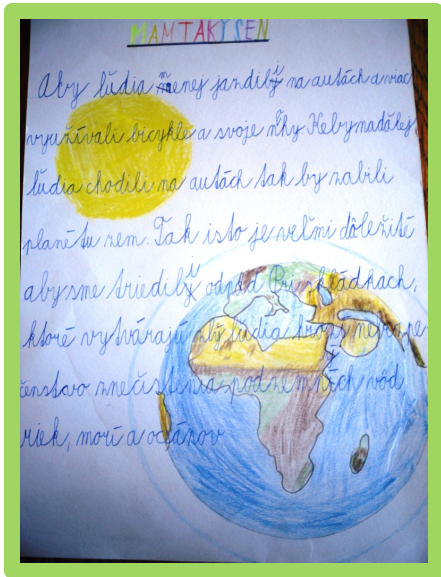 MAM TAKÝ SEN
Aby ľudia menej jazdili na autách a viac
využívali bicykle a svoje nohy. Keby naďalej
ľudia chodili na autách tak by zabili
planétu zem. Tak isto je veľmi dôležité
aby sme triedili odpad. Pri skládkach,
ktoré vytvárajú zlý ľudia hrozí nebezpe
čenstvo znečistenia podzemných vôd
riek, morí a oceánov